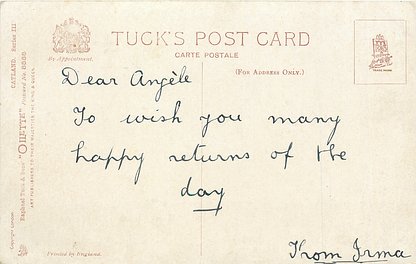 TUCK'S POST CARD
CARTE POSTALE
By Appointment.
(FOR ADDRESS ONLY.)
TRADE MARK
Dear Angèle
To wish you many
happy returns of the
day
From Irma
Printed in England.
Copyright London.
Raphael Tuck & Sons' "OILETTE"
ART PUBLISHERS TO THEIR MAJESTIES THE KING & QUEEN.
OATLAND. Series III